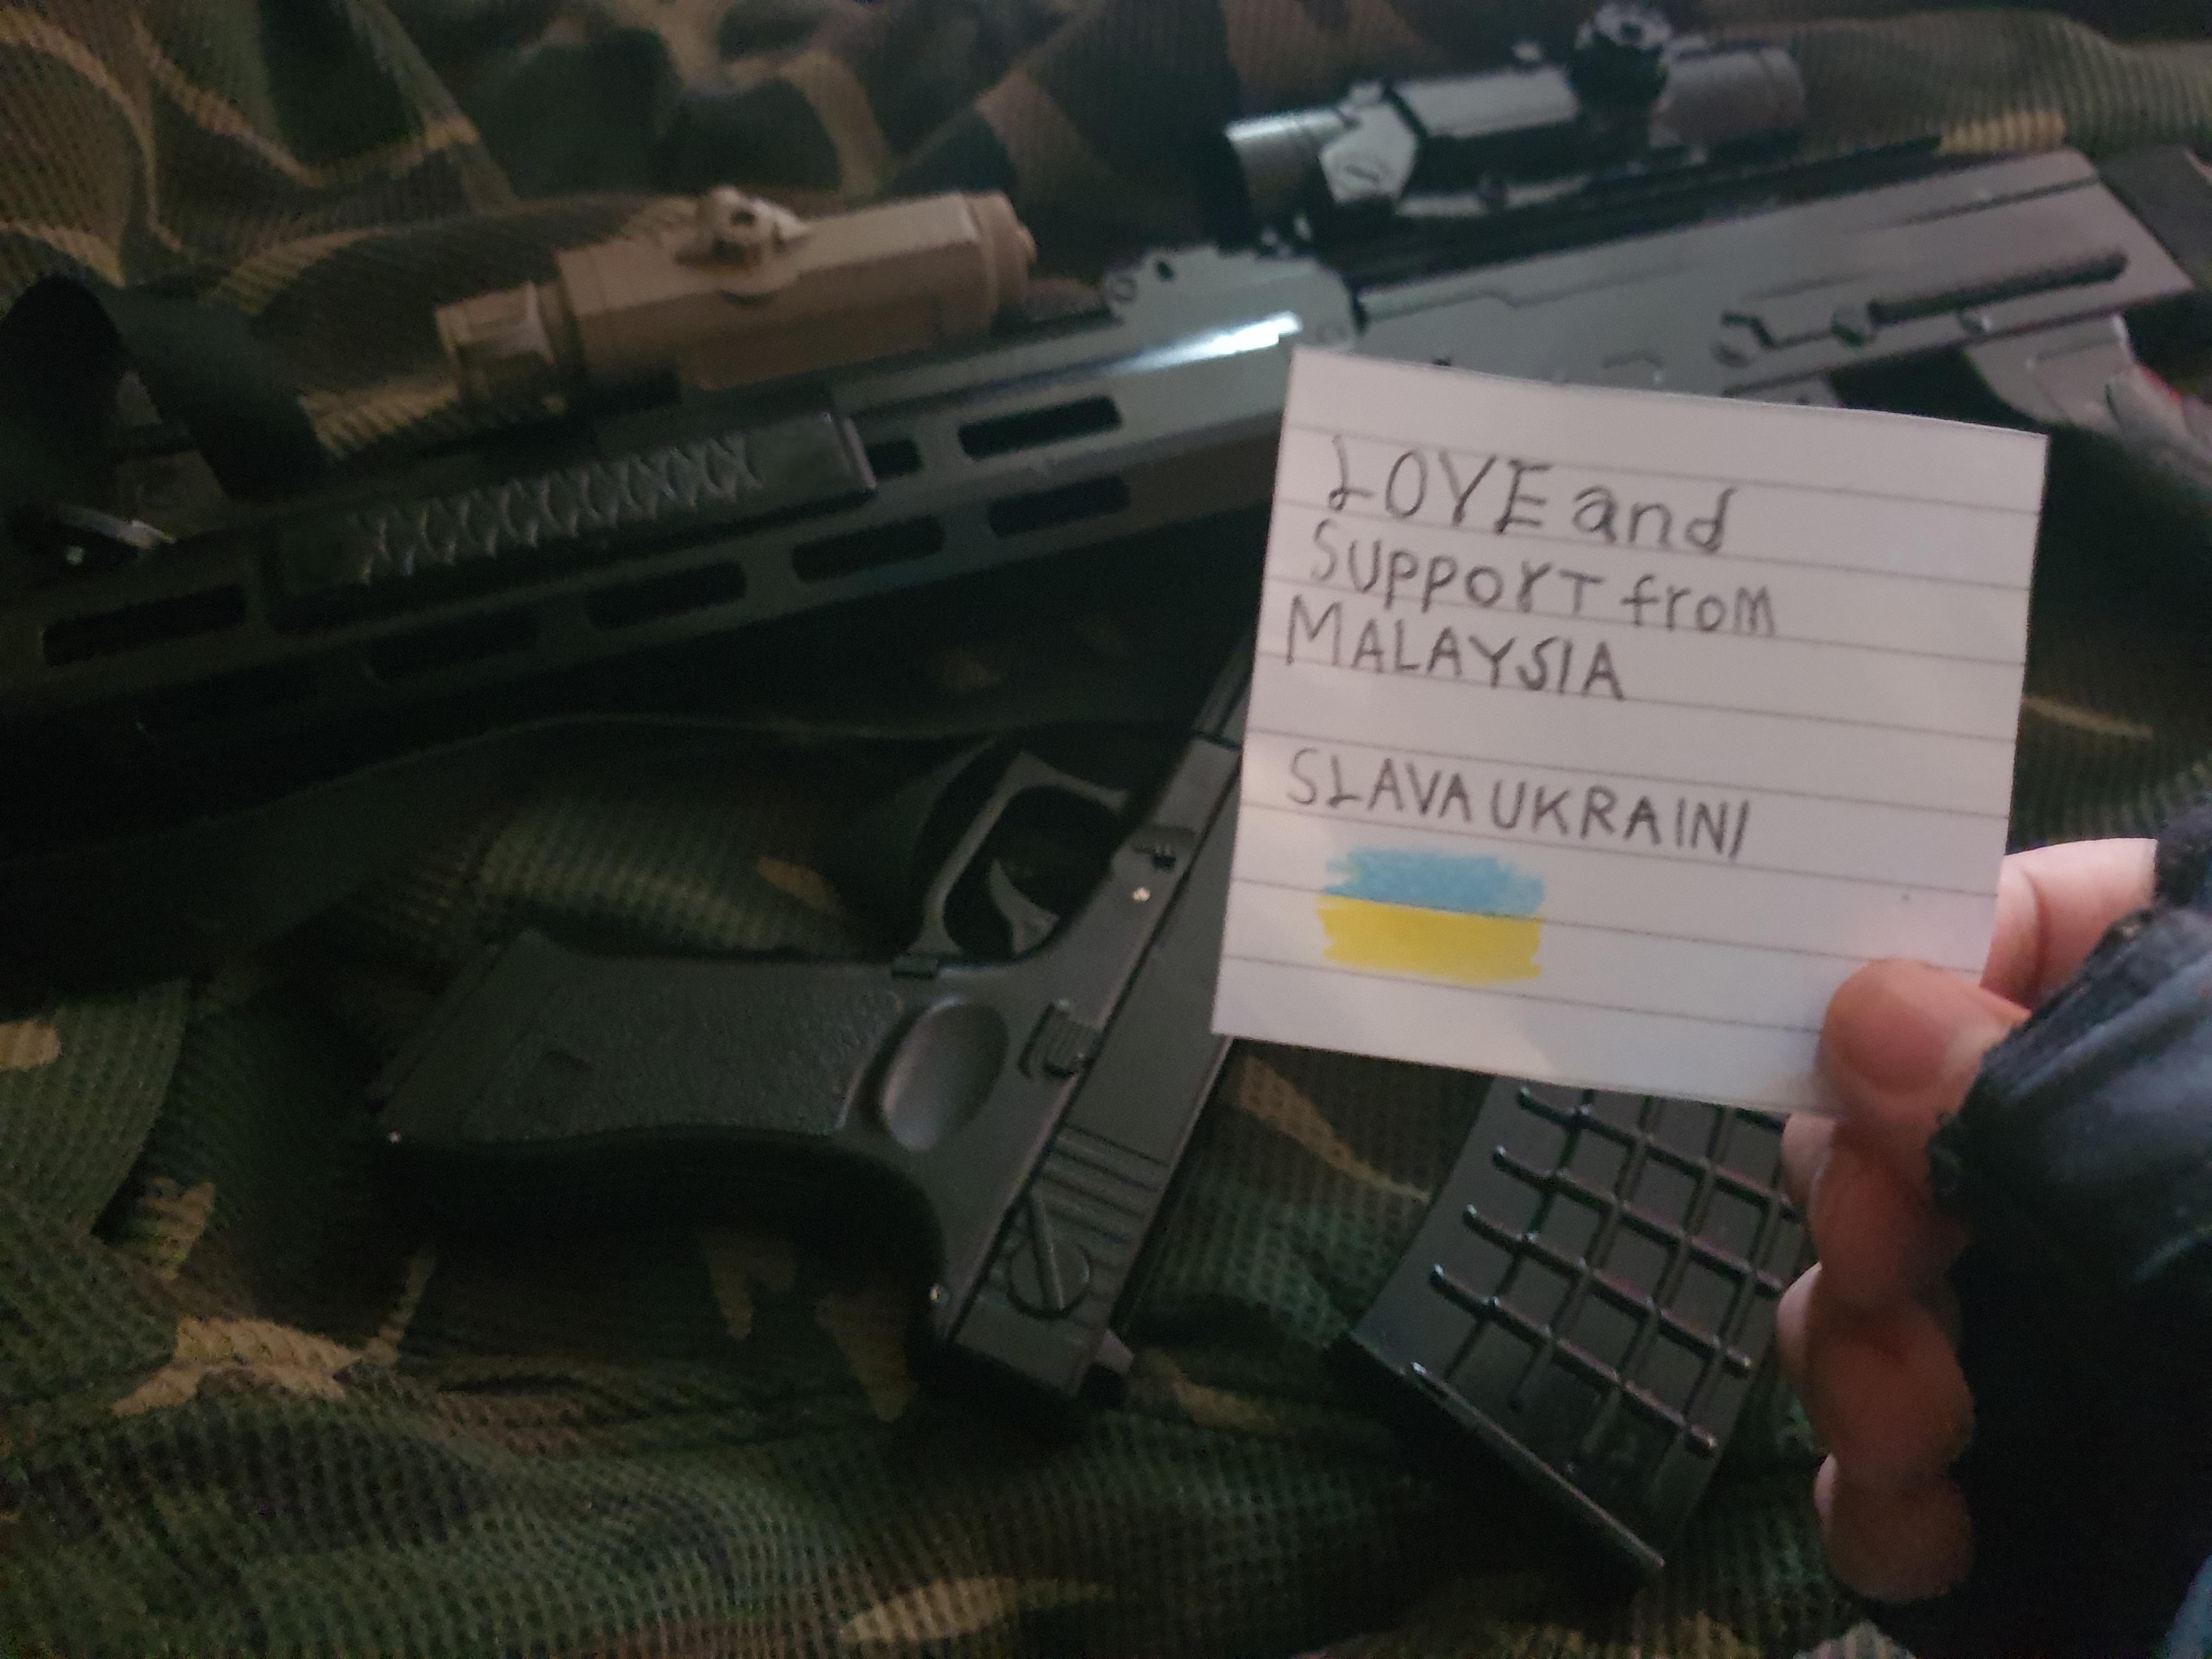 LOVE and
SUPPORT from
MALAYSIA
SLAVA UKRAINI